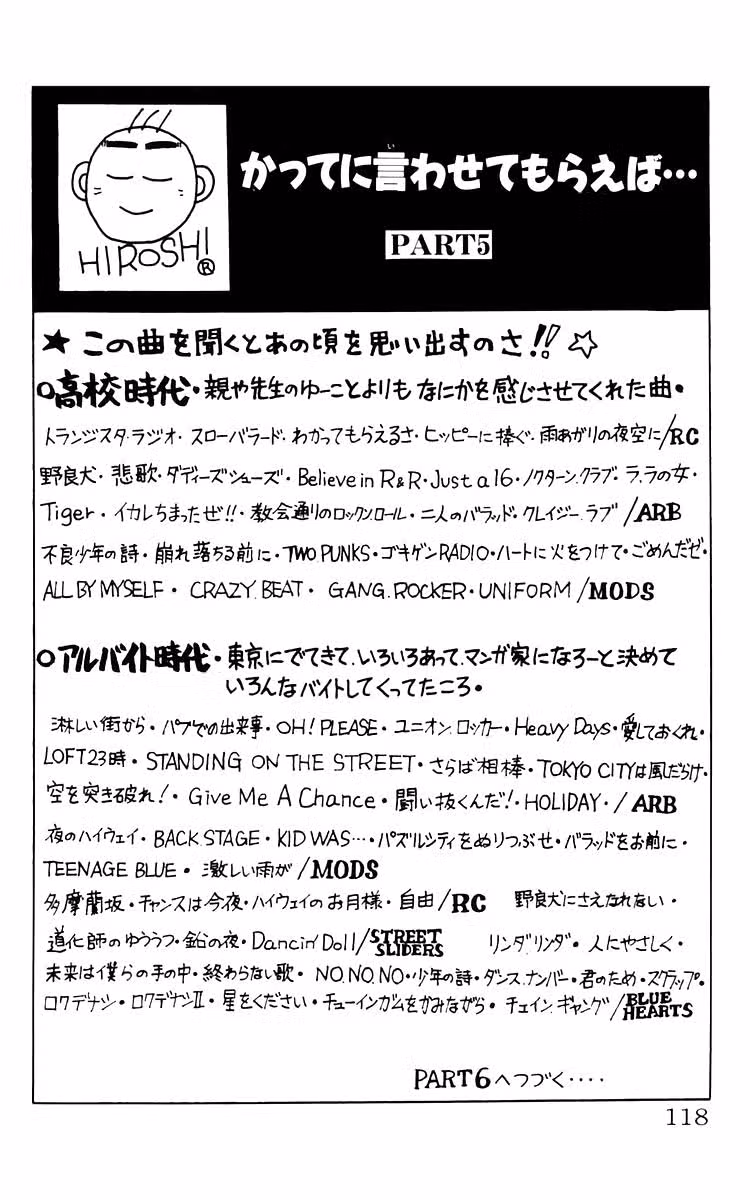 HIROSHI®
かってに言わせてもらえば…
い
PART5
★この曲を聞くとあの頃を思い出すのさ!!☆
○高校時代・親や先生のゆーことよりもなにかを感じさせてくれた曲・
トランジスタ・ラジオ・スローバラード・わかってもらえるさ・ヒッピーに捧ぐ・雨あがりの夜空に/RC
野良犬・悲歌・ダディーズシューズ・Believe in R&R・Just a 16・ノクターン.クラブ・ラ.ラの女・
Tiger・イカレちまったぜ!!・教会通りのロックンロール・二人のバラッド・クレイジー.ラブ/ARB
不良少年の詩・崩れ落ちる前に・TWO PUNKS・ゴキゲンRADIO・ハートに火をつけて・ごめんだぜ・
ALL BY MYSELF・CRAZY.BEAT・GANG.ROCKER・UNIFORM/MODS
○アルバイト時代・東京にでてきて.いろいろあって.マンガ家になろーと決めて
いろんなバイトしてくってたころ・
淋しい街から・パブでの出来事・OH!PLEASE・ユニオン.ロッカー・Heavy Days・愛しておくれ・
LOFT23時・STANDING ON THE STREET・さらば相棒・TOKYO CITYは風だらけ・
空を突き破れ!・Give Me A Chance・闘い抜くんだ!・HOLIDAY・/ARB
夜のハイウェイ・BACK.STAGE・KID WAS…・パズルシティをぬりつぶせ・バラッドをお前に・
TEENAGE BLUE・激しい雨が/MODS
多摩蘭坂・チャンスは今夜・ハイウェイのお月様・自由/RC 野良犬にさえなれない・
道化師のゆううつ・鉛の夜・Dancin' Doll/STREET SLIDERS リンダリンダ・人にやさしく・
未来は僕らの手の中・終わらない歌・NO.NO.NO・少年の詩・ダンス.ナンバー・君のため・スクラップ・
ロクデナシ・ロクデナシⅡ・星をください・チューインガムをかみながら・チェイン.ギャング/BLUE HEARTS
PART6へつづく・・・・
118